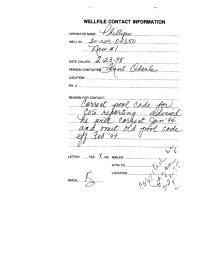 WELLFILE CONTACT INFORMATION
OPERATOR NAME: Phillips
WELL ID: 30-025-
#1
DATE CALLED: 2-23-95
PERSON CONTACTED:
LOCATION:
PH. #:
REASON FOR CONTACT:
Correct pool code for
C115 reporting. Advised
he will correct Jan '94
and omit old pool code
eff Feb '94.
LETTER: YES X NO MAILED:
ATTN TO:
LOCATION:
INITIAL: